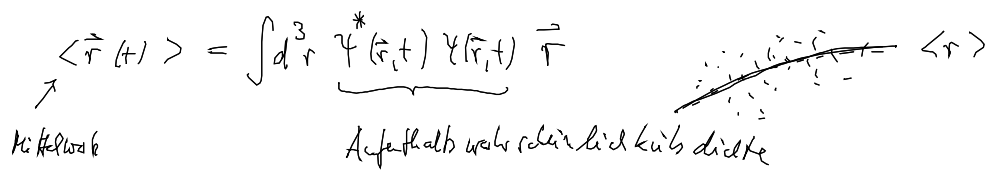 ⟨r⃗(t)⟩ = ∫d³r ψ*(r⃗,t) ψ(r⃗,t) r⃗ ⟨r⟩
Mittelwert Aufenthaltswahrscheinlichkeitsdichte